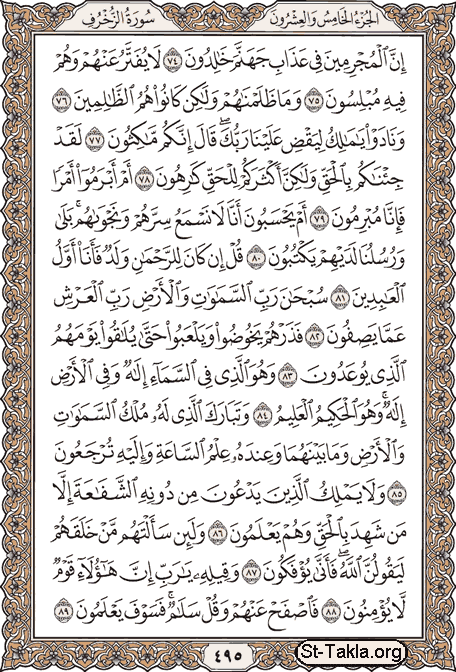 الجزء الخامس والعشرون
سورة الزخرف
إِنَّ ٱلْمُجْرِمِينَ فِى عَذَابِ جَهَنَّمَ خَٰلِدُونَ ٧٤ لَا يُفَتَّرُ عَنْهُمْ وَهُمْ
فِيهِ مُبْلِسُونَ ٧٥ وَمَا ظَلَمْنَٰهُمْ وَلَٰكِن كَانُوا۟ هُمُ ٱلظَّٰلِمِينَ ٧٦
وَنَادَوْا۟ يَٰمَٰلِكُ لِيَقْضِ عَلَيْنَا رَبُّكَ ۖ قَالَ إِنَّكُم مَّٰكِثُونَ ٧٧ لَقَدْ
جِئْنَٰكُم بِٱلْحَقِّ وَلَٰكِنَّ أَكْثَرَكُمْ لِلْحَقِّ كَٰرِهُونَ ٧٨ أَمْ أَبْرَمُوٓا۟ أَمْرًا
فَإِنَّا مُبْرِمُونَ ٧٩ أَمْ يَحْسَبُونَ أَنَّا لَا نَسْمَعُ سِرَّهُمْ وَنَجْوَىٰهُم ۚ بَلَىٰ
وَرُسُلُنَا لَدَيْهِمْ يَكْتُبُونَ ٨٠ قُلْ إِن كَانَ لِلرَّحْمَٰنِ وَلَدٌ فَأَنَا۠ أَوَّلُ
ٱلْعَٰبِدِينَ ٨١ سُبْحَٰنَ رَبِّ ٱلسَّمَٰوَٰتِ وَٱلْأَرْضِ رَبِّ ٱلْعَرْشِ
عَمَّا يَصِفُونَ ٨٢ فَذَرْهُمْ يَخُوضُوا۟ وَيَلْعَبُوا۟ حَتَّىٰ يُلَٰقُوا۟ يَوْمَهُمُ
ٱلَّذِى يُوعَدُونَ ٨٣ وَهُوَ ٱلَّذِى فِى ٱلسَّمَآءِ إِلَٰهٌ وَفِى ٱلْأَرْضِ
إِلَٰهٌ ۚ وَهُوَ ٱلْحَكِيمُ ٱلْعَلِيمُ ٨٤ وَتَبَارَكَ ٱلَّذِى لَهُۥ مُلْكُ ٱلسَّمَٰوَٰتِ
وَٱلْأَرْضِ وَمَا بَيْنَهُمَا وَعِندَهُۥ عِلْمُ ٱلسَّاعَةِ وَإِلَيْهِ تُرْجَعُونَ
٨٥ وَلَا يَمْلِكُ ٱلَّذِينَ يَدْعُونَ مِن دُونِهِ ٱلشَّفَٰعَةَ إِلَّا
مَن شَهِدَ بِٱلْحَقِّ وَهُمْ يَعْلَمُونَ ٨٦ وَلَئِن سَأَلْتَهُم مَّنْ خَلَقَهُمْ
لَيَقُولُنَّ ٱللَّهُ ۖ فَأَنَّىٰ يُؤْفَكُونَ ٨٧ وَقِيلِهِۦ يَٰرَبِّ إِنَّ هَٰٓؤُلَآءِ قَوْمٌ
لَّا يُؤْمِنُونَ ٨٨ فَٱصْفَحْ عَنْهُمْ وَقُلْ سَلَٰمٌ ۚ فَسَوْفَ يَعْلَمُونَ ٨٩
٤٩٥
St-Takla.org